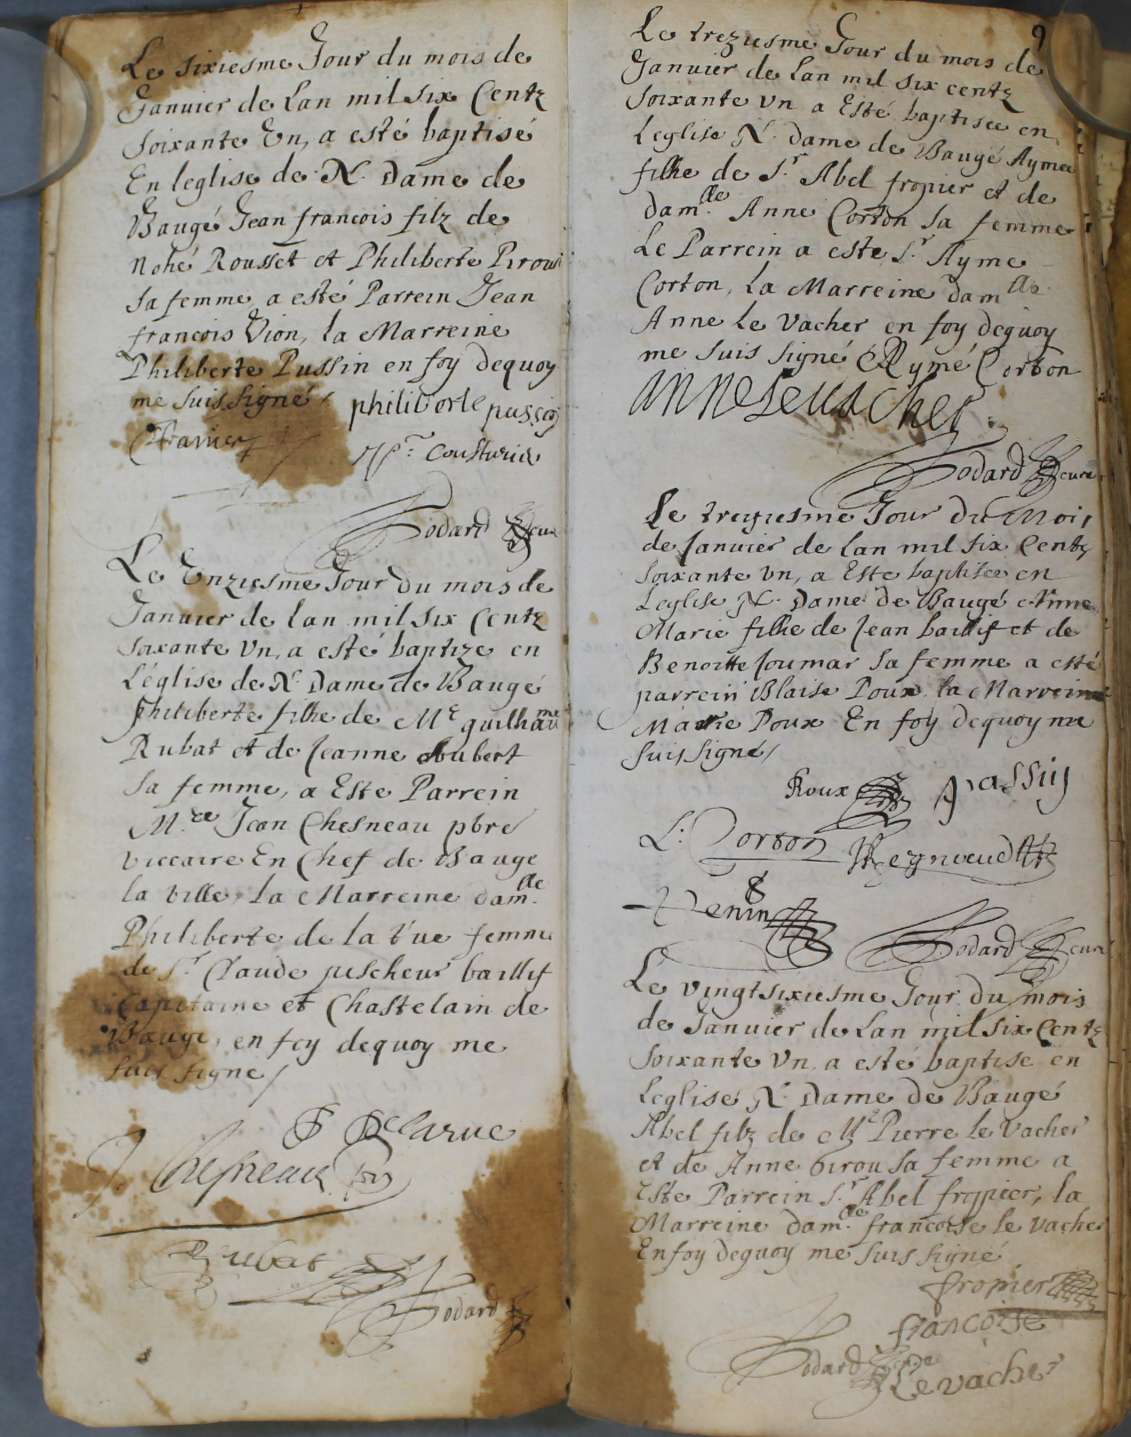 Le sixiesme Jour du mois de
Januier de Lan mil six Centz
soixante En, a esté baptisé
En leglise de N. Dame de
Baugé Jean francois filz de
Nohé Rousset et Philiberte Pirou
sa femme, a esté Parrein Jean
francois Vion, la Marreine
Philiberte Pussin en foy dequoy
me suis signé philiberte pussin
Cousturie
Bodard cu
Le Enziesme Jour du mois de
Januier de lan mil six Centz
soixante Vn, a esté baptize en
Léglise de N. Dame de Baugé
Philiberte filhe de Me guilhaume
Rubat et de Jeanne Aubert
sa femme, a Este Parrein
M.re Jean Chesneau pbre
viccaire En Chef de Bauge
la Ville, La Marreine dam.lle
Philiberte de la rue femme
de Sr Claude pescheur baillif
Capitaine et Chastelain de
Baugé, en foy dequoy me
suis signé
P Delarue
J. Chesneau
Rubat
Bodard
9
Le treziesme Jour du mois de
Januier de Lan mil six centz
soixante Vn a Esté baptisée en
Leglise N. dame de Baugé Aymée
filhe de Sr. Abel fropier et de
dam.lle Anne Corton sa femme
Le Parrein a este Sr. Ayme
Corton, La Marreine damlle
Anne Le Vacher en foy dequoy
me suis signé Aymé Corton
anne le uacher
Bodard cure
Le treziesme Jour du Mois
de Januier de lan mil six Centz
soixante Vn, a Este baptisée en
Leglise N. Dame de Baugé Anne
Marie filhe de Jean baillif et de
Benoitte Joumar sa femme a esté
parrein Blaise Poux la Marreine
Marie Poux En foy dequoy me
suis signé
Roux Passin
L. Corton Regnveud
Venin
Bodard curé
Le vingt sixiesme Jour du mois
de Januier de Lan mil six Centz
soixante Vn a esté baptisé en
Leglise N. Dame de Baugé
Abel filz de Me Pierre le Vacher
et de Anne Pirou sa femme a
Esté Parrein Sr Abel fropier, la
Marreine dam.lle francoise le vacher
En foy dequoy me suis signé
fropier
francoise
Bodard Le vacher